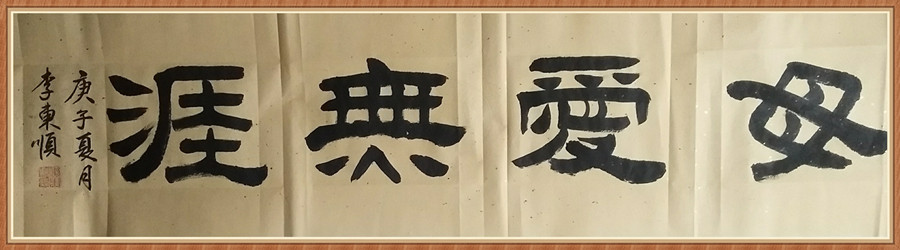 母愛無涯
庚子夏月
李東順